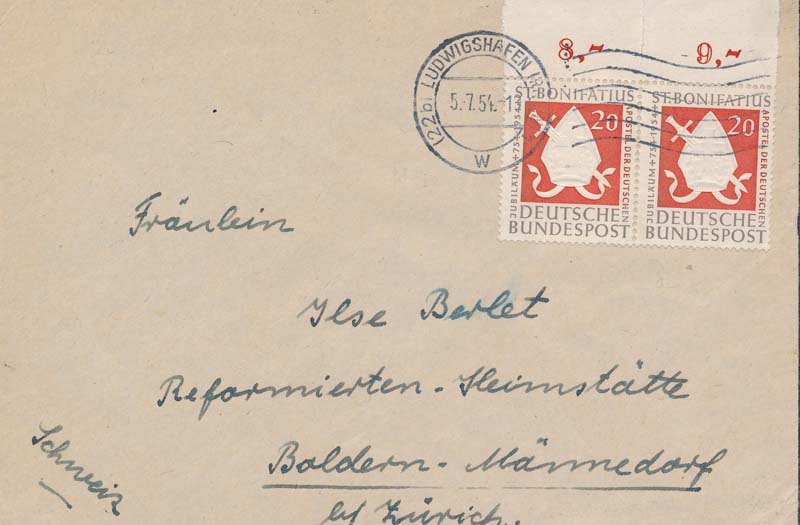 8,- 9,-
(22b) LUDWIGSHAFEN
5.-7.54.-13
W
ST.BONIFATIUS
20
JUBILÄUM + 754-1954 +
APOSTEL DER DEUTSCHEN
DEUTSCHE
BUNDESPOST
ST.BONIFATIUS
20
JUBILÄUM + 754-1954 +
APOSTEL DER DEUTSCHEN
DEUTSCHE
BUNDESPOST
Fräulein
Ilse Berlet
Reformierten-Heimstätte
Boldern-Männedorf
bei Zürich.
Schweiz